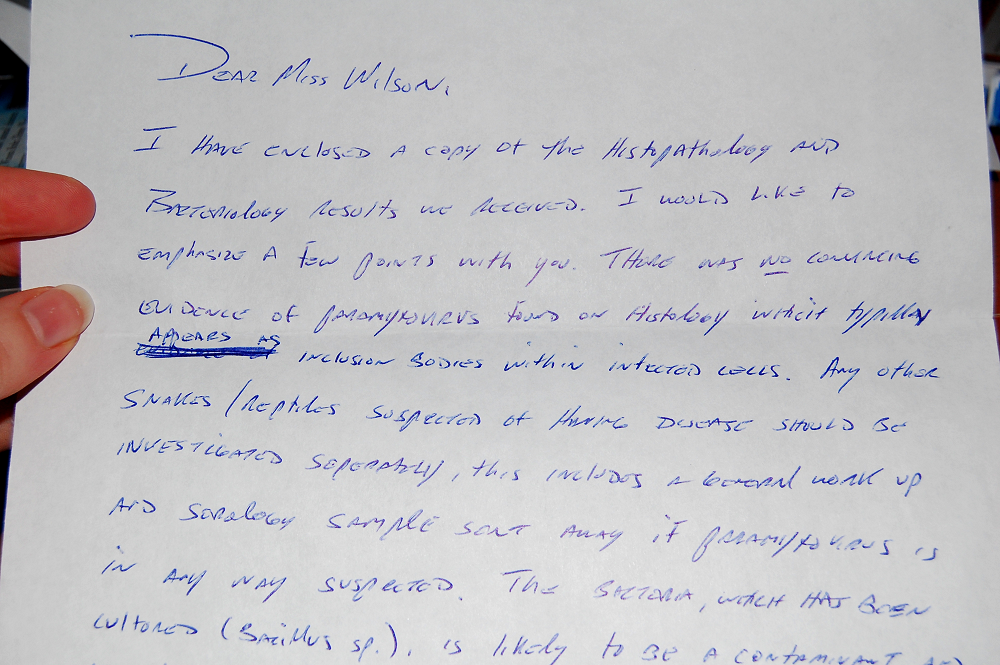 Dear Miss Wilson,
I have enclosed a copy of the Histopathology and
Bacteriology results we received. I would like to
emphasize a few points with you. There was no convincing
evidence of paramyxovirus found on Histology which typically
appears as
inclusion bodies within infected cells. Any other
snakes/reptiles suspected of having disease should be
investigated seperately, this includes a general work up
and serology sample sent away if paramyxovirus is
in any way suspected. The bacteria, which has been
cultured (Bacillus sp.), is likely to be a contaminant and